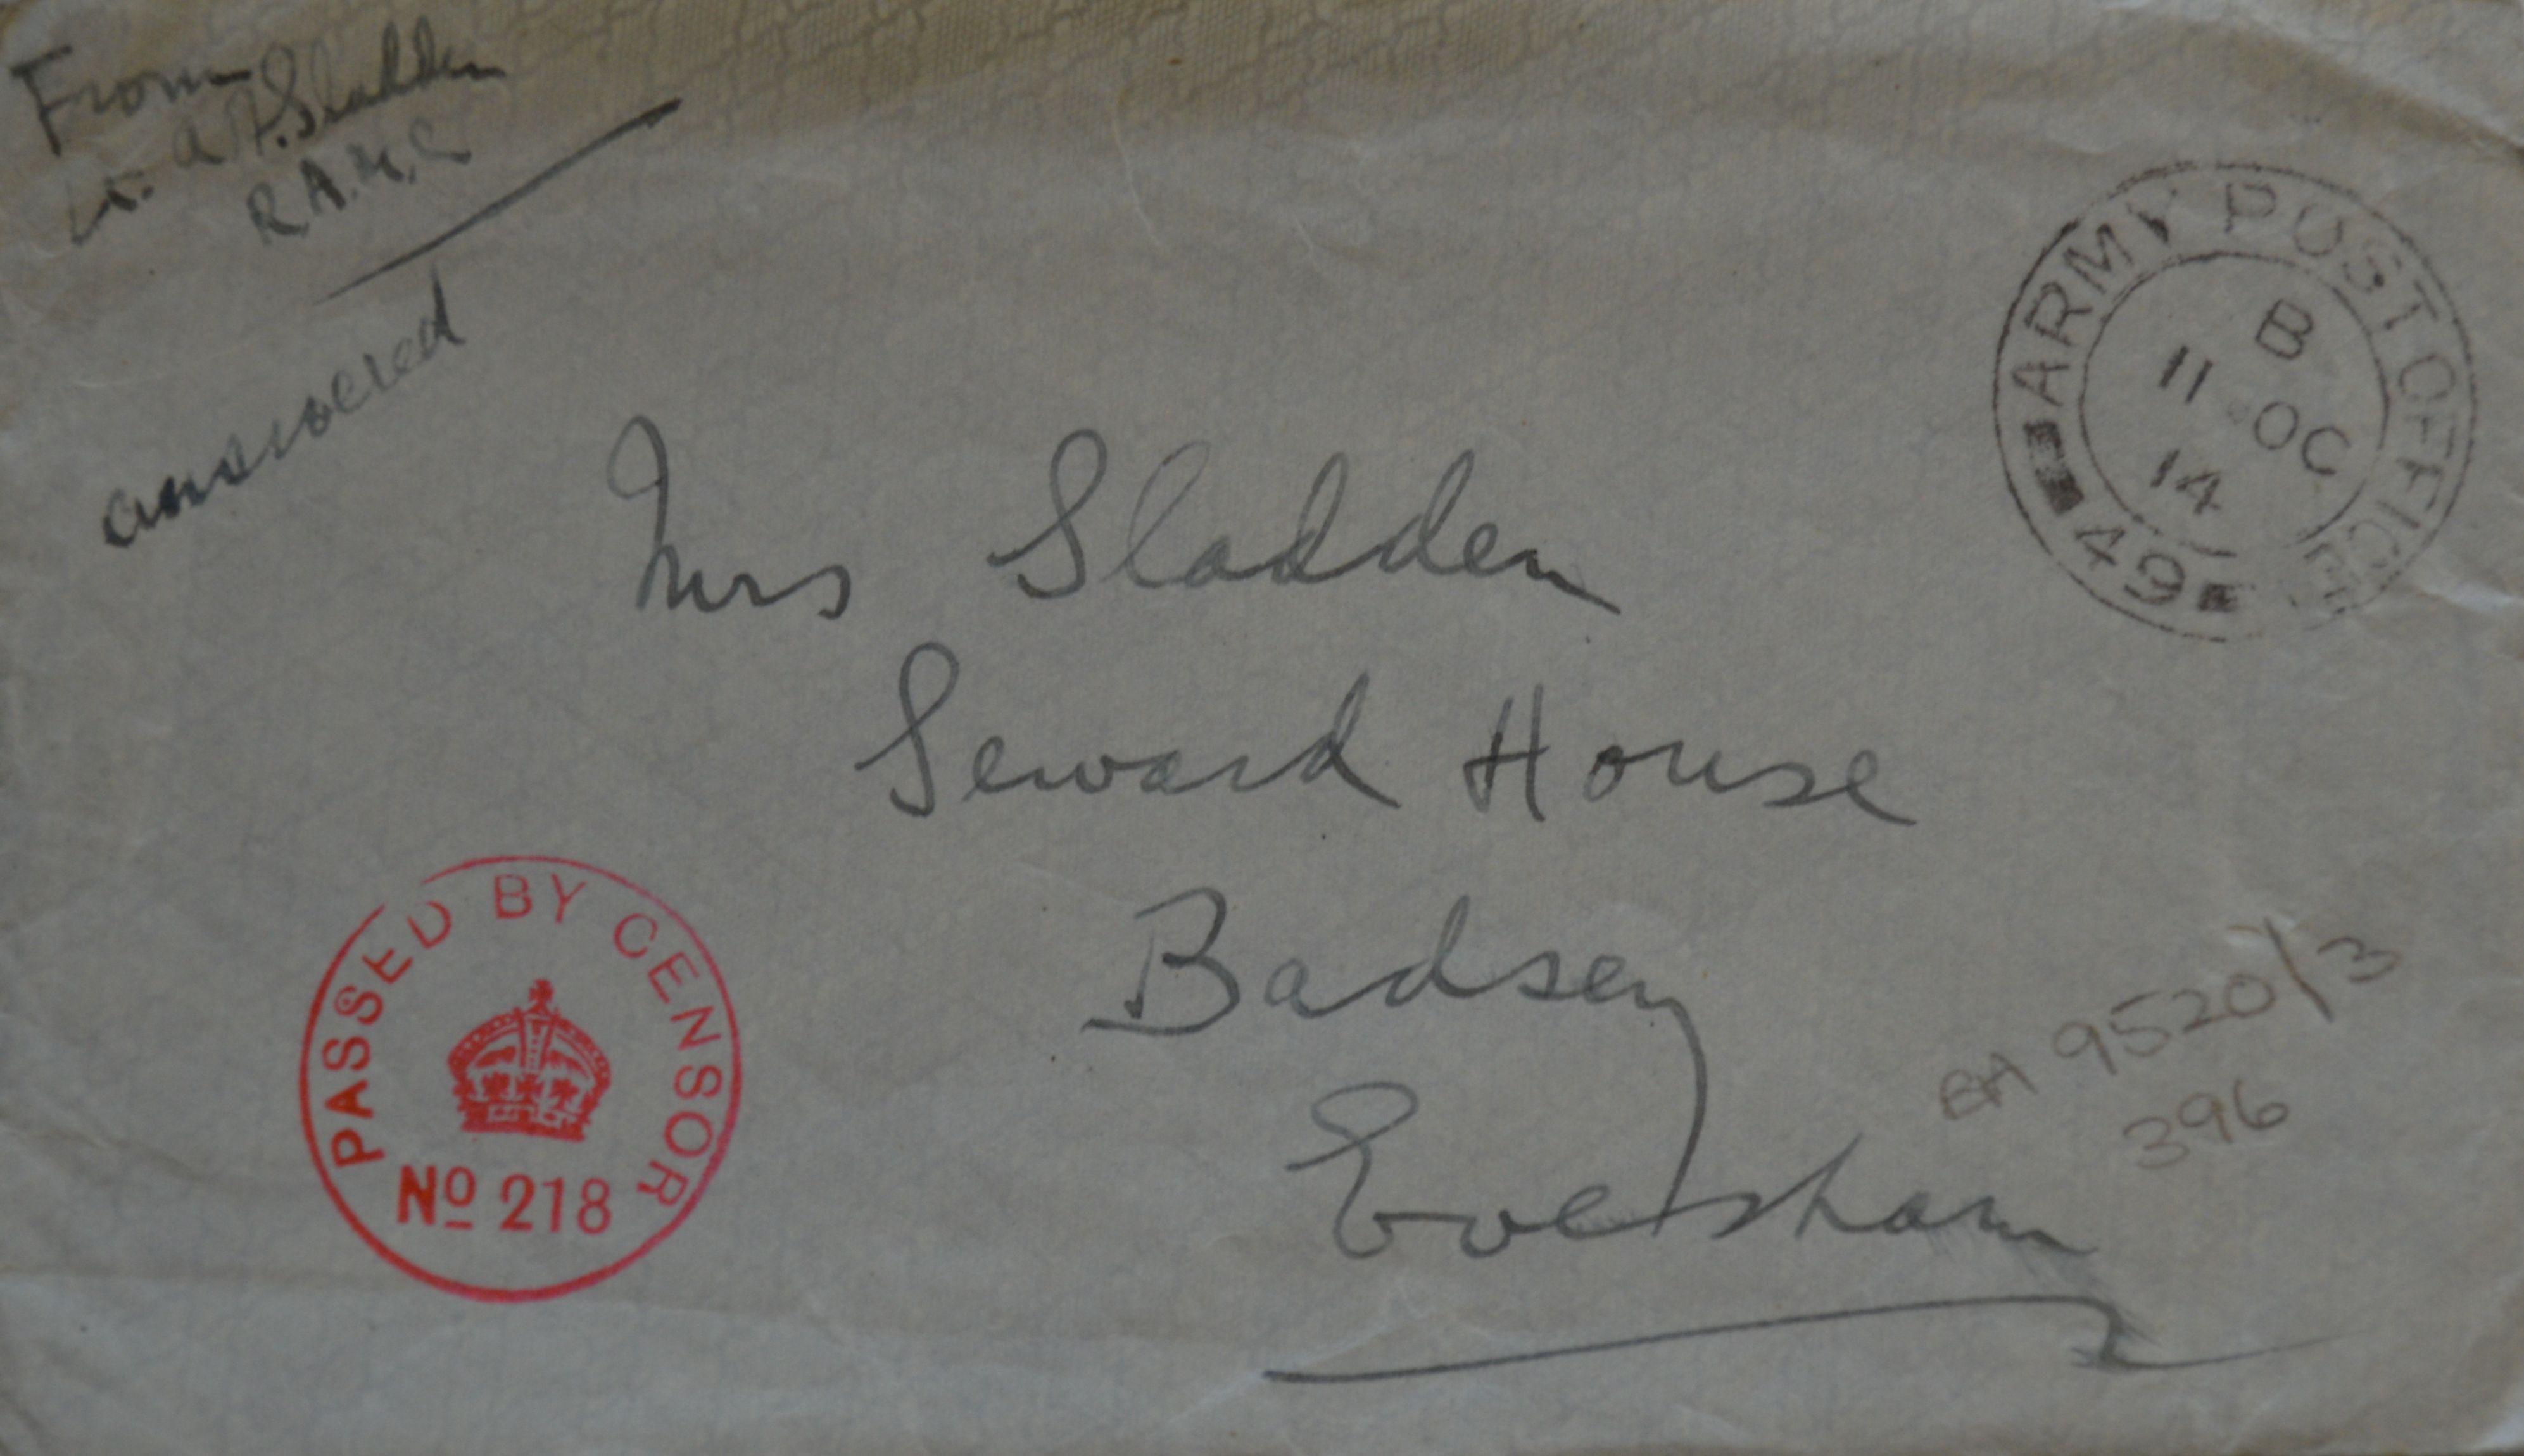 From
Lt. A F. Sladden
R.A.M.C
answered
ARMY POST OFFICE
B
11 OC
14
49
Mrs Sladden
Seward House
Badsey
Evesham
PASSED BY CENSOR
No 218
EA 9520/3
396